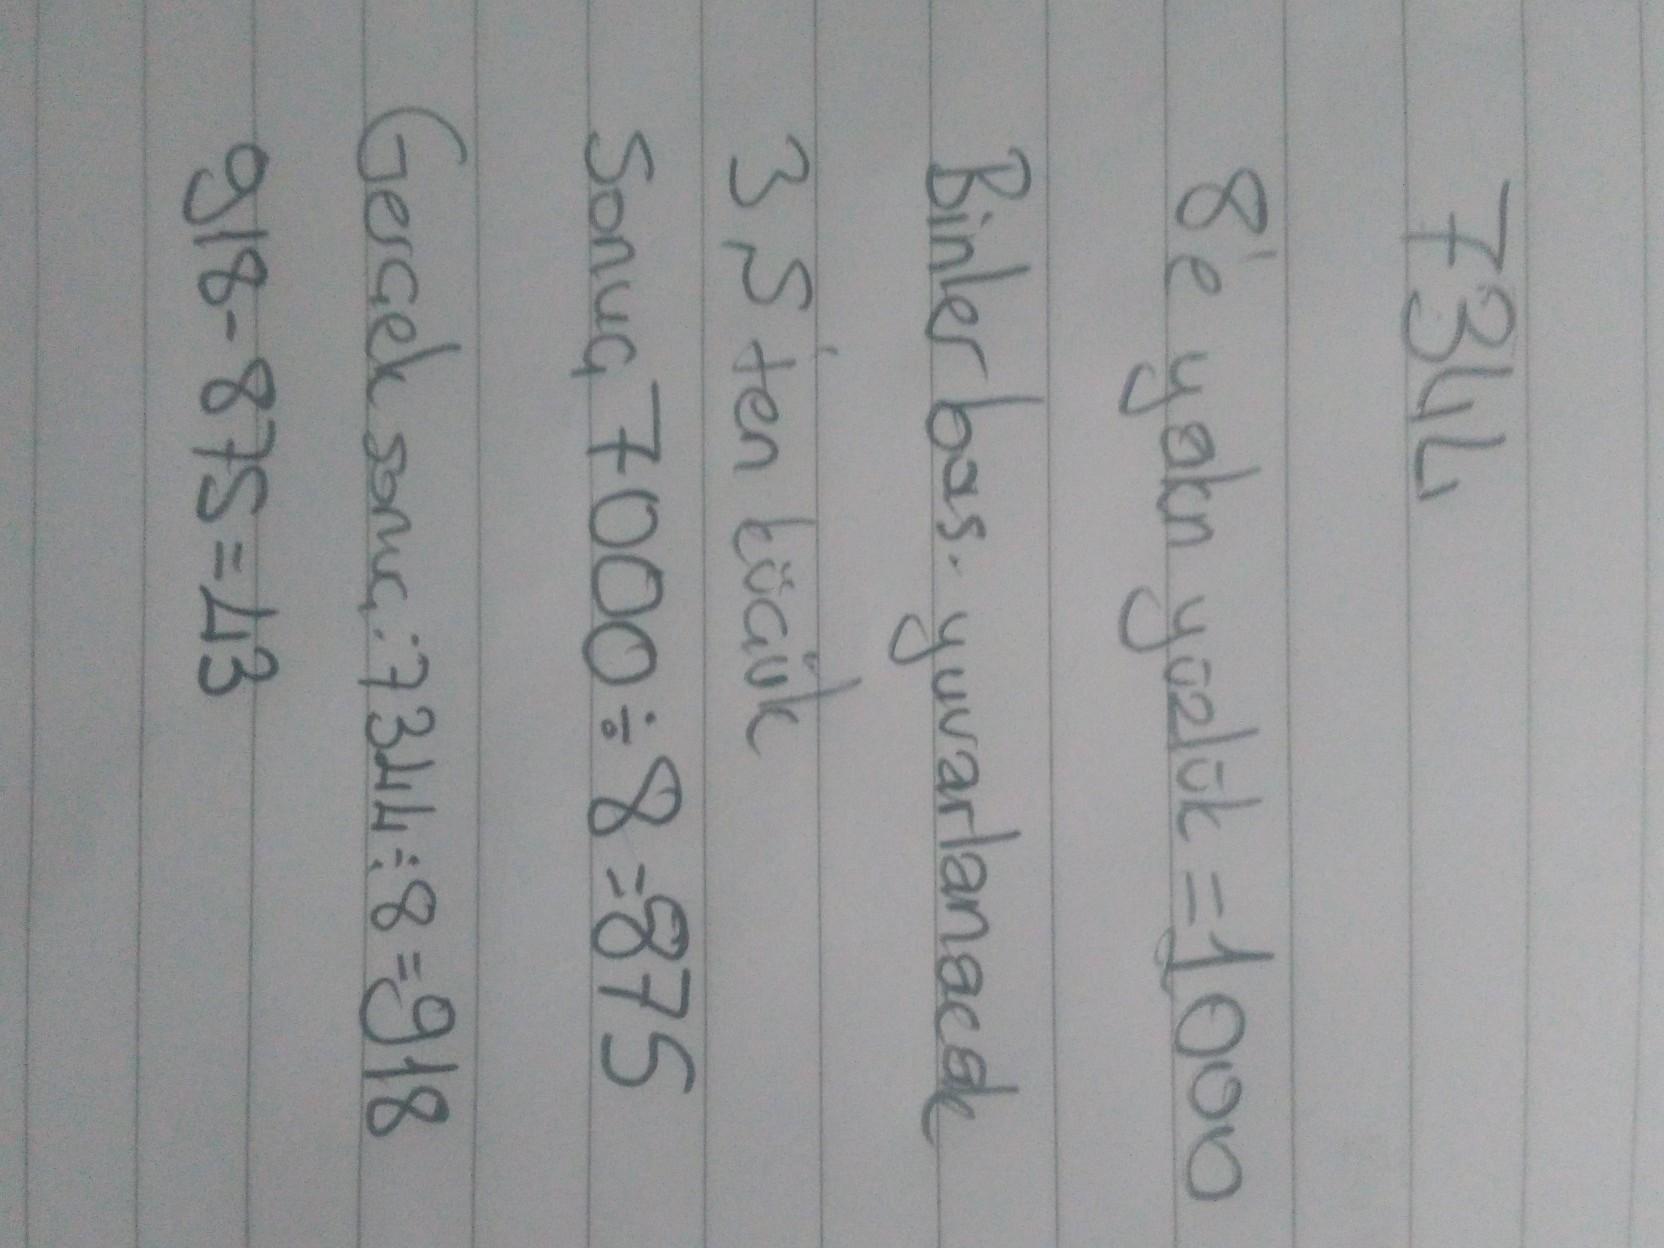 7344
8'e yakın yüzlük = 1000
Binler bas. yuvarlanacak
3, 5'ten küçük
Sonuç 7000 ÷ 8 = 875
Gerçek sonuç: 7344 ÷ 8 = 918
918 - 875 = 43